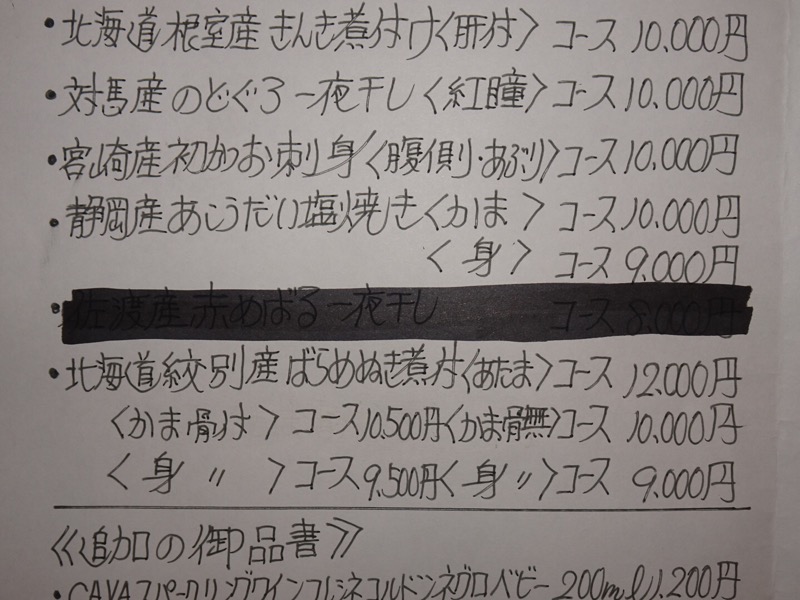 ・北海道根室産きんき煮付け〈肝付〉コース10,000円
・対馬産のどぐろ一夜干し〈紅瞳〉コース10,000円
・宮崎産初かつお刺身〈腹側・あぶり〉コース10,000円
・静岡産あこうだい塩焼き〈かま〉コース10,000円
〈身〉コース9,000円
・佐渡産赤めばる一夜干し コース8,000円
・北海道紋別産ばらめぬき煮付〈あたま〉コース12,000円
〈かま骨付〉コース10,500円〈かま骨無〉コース10,000円
〈身〃〉コース9,500円〈身〃〉コース9,000円
《追加の御品書》
・CAVAスパークリングワインフレシネコルドンネグロベビー200ml1,200円